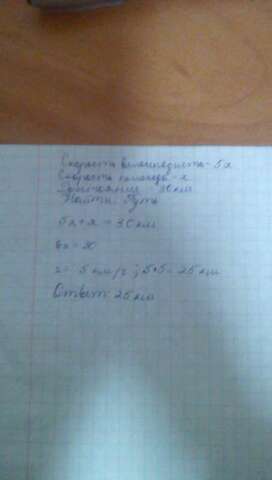 Скорость велосипедиста - 5x
Скорость пешехода - x
Расстояние 30 км
Найти: Путь
5x+x = 30 км
6x = 30
x = 5 км/ч ; 5•5 = 25 км
Ответ: 25 км